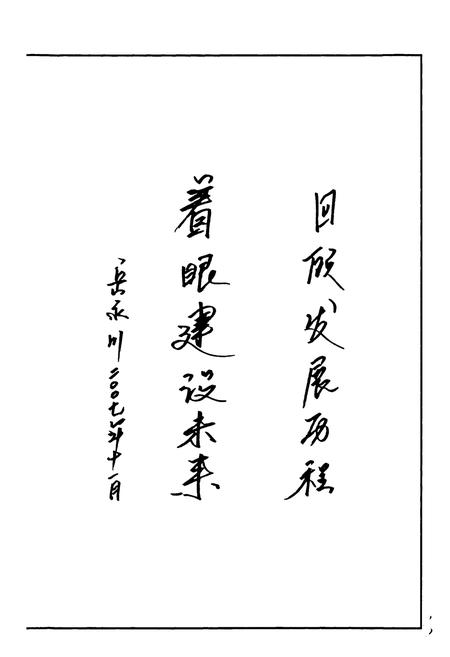 回顾发展历程
着眼建设未来
岳永川 二〇〇七年十一月